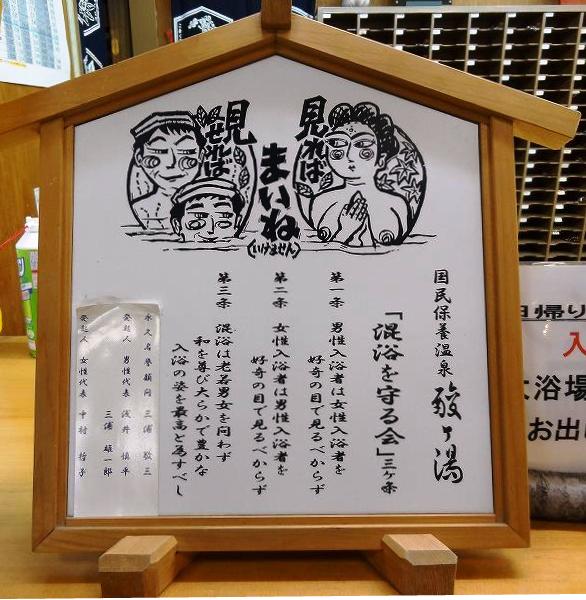 見れば
まいね
(いけません)
見せれば
国民保養温泉 酸ヶ湯
「混浴を守る会」三ヶ条
第一条 男性入浴者は女性入浴者を
好奇の目で見るべからず
第二条 女性入浴者は男性入浴者を
好奇の目で見るべからず
第三条 混浴は老若男女を問わず
和を尊び大らかで豊かな
入浴の姿を最高と為すべし
永久名誉顧問 三浦 敬三
三浦 雄一郎
発起人 男性代表 浅井 慎平
発起人 女性代表 中村 哲子
日帰り
入
大浴場
お出